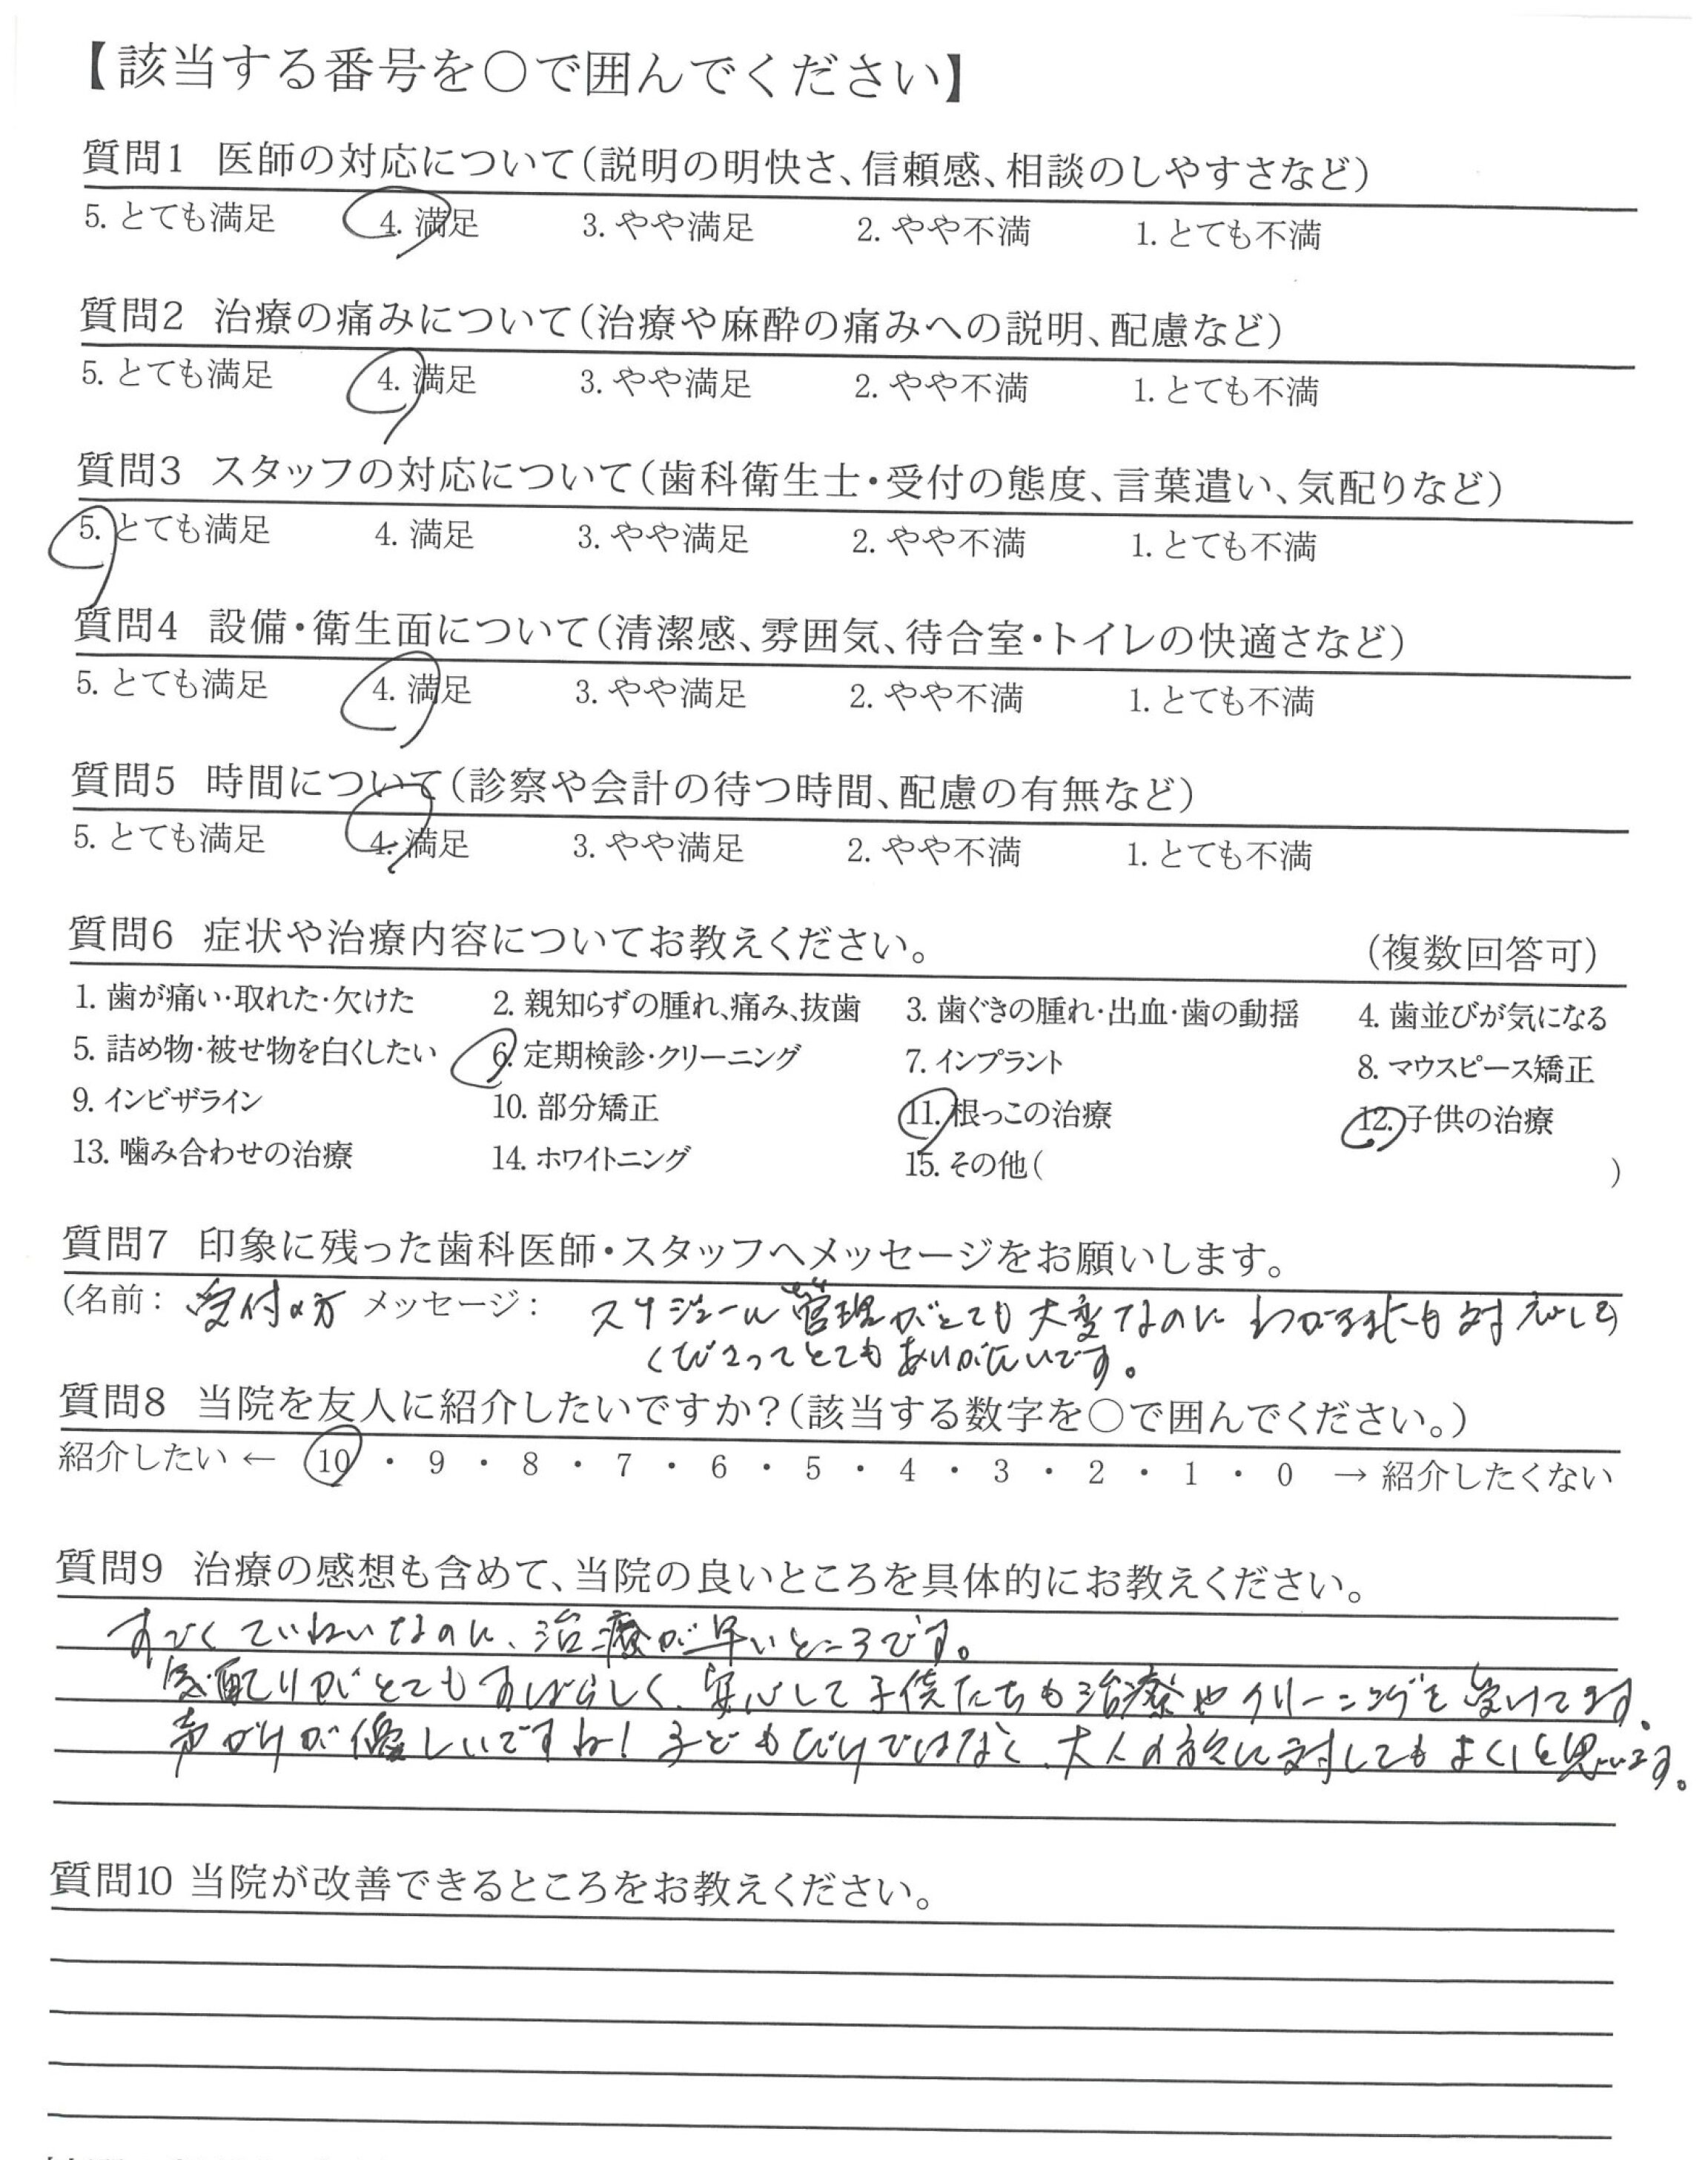 【該当する番号を○で囲んでください】
質問1 医師の対応について(説明の明快さ、信頼感、相談のしやすさなど)
5. とても満足 4. 満足 3. やや満足 2. やや不満 1. とても不満
質問2 治療の痛みについて(治療や麻酔の痛みへの説明、配慮など)
5. とても満足 4. 満足 3. やや満足 2. やや不満 1. とても不満
質問3 スタッフの対応について(歯科衛生士・受付の態度、言葉遣い、気配りなど)
5. とても満足 4. 満足 3. やや満足 2. やや不満 1. とても不満
質問4 設備・衛生面について(清潔感、雰囲気、待合室・トイレの快適さなど)
5. とても満足 4. 満足 3. やや満足 2. やや不満 1. とても不満
質問5 時間について(診察や会計の待つ時間、配慮の有無など)
5. とても満足 4. 満足 3. やや満足 2. やや不満 1. とても不満
質問6 症状や治療内容についてお教えください。 (複数回答可)
1. 歯が痛い・取れた・欠けた 2. 親知らずの腫れ、痛み、抜歯 3. 歯ぐきの腫れ・出血・歯の動揺 4. 歯並びが気になる
5. 詰め物・被せ物を白くしたい 6. 定期検診・クリーニング 7. インプラント 8. マウスピース矯正
9. インビザライン 10. 部分矯正 11. 根っこの治療 12. 子供の治療
13. 噛み合わせの治療 14. ホワイトニング 15. その他( )
質問7 印象に残った歯科医師・スタッフへメッセージをお願いします。
(名前: 受付の方 メッセージ: スケジュール管理がとても大変なのに 対応して
くださってとてもありがたいです。
質問8 当院を友人に紹介したいですか?(該当する数字を○で囲んでください。)
紹介したい ← 10 ・ 9 ・ 8 ・ 7 ・ 6 ・ 5 ・ 4 ・ 3 ・ 2 ・ 1 ・ 0 → 紹介したくない
質問9 治療の感想も含めて、当院の良いところを具体的にお教えください。
すごくていねいなのに、治療が早いところです。
気配りがとてもすばらしく、安心して子供たちも治療やクリーニングを受けてます。
声がけが優しいですね!子どもだけではなく、大人の方々に対してもよくと思います。
質問10 当院が改善できるところをお教えください。